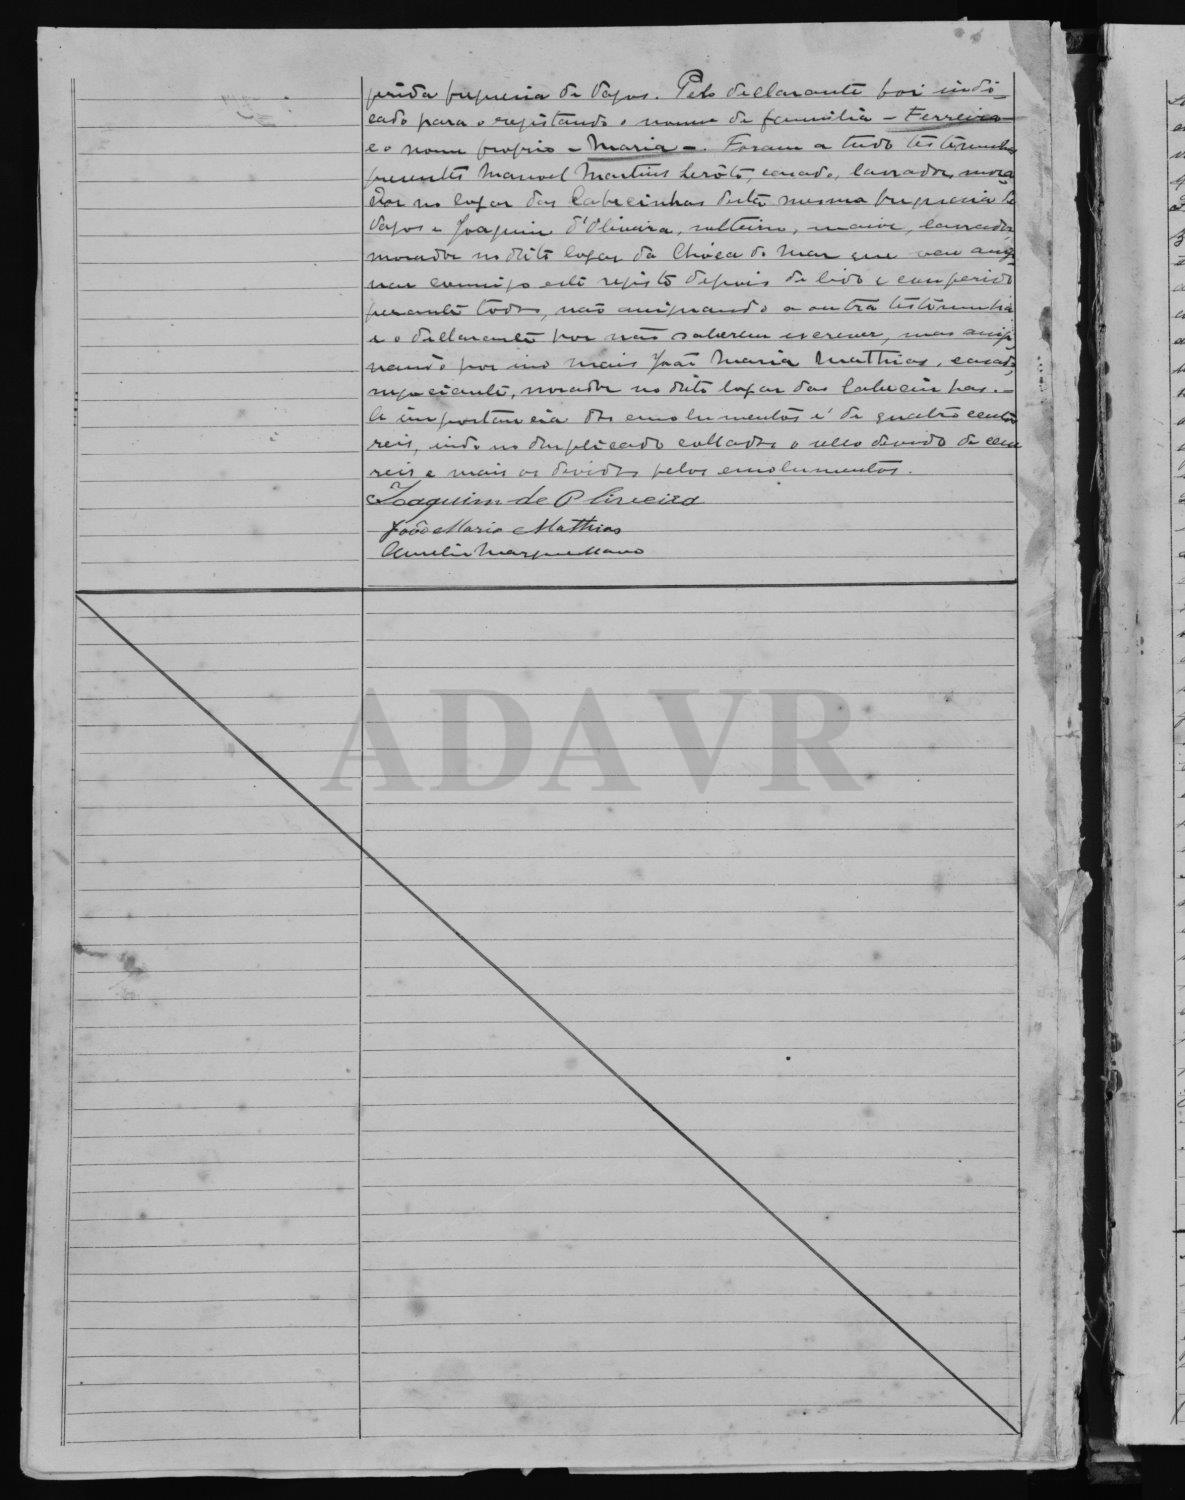 ferida freguesia de Vagos. Pelo declarante foi indi-
cado para o registando o nome de familia - Ferreira -
e o nome proprio - Maria -. Foram a tudo testemunhas
presentes Manoel Martins casado, lavrador, mora
dor no lugar das Cabecinhas desta mesma freguesia de
Vagos e Joaquim d'Oliveira, solteiro, maior, lavrador,
morador no dito lugar da Choca do Mar que vae assig-
nar commigo este registo depois de lido e conferido
perante todos, não assignando a outra testemunha
e o declarante por não saberem escrever, mas assig-
nando por isso mais João Maria Mathias, casado,
negociante, morador no dito lugar das Cabecinhas. -
A importancia dos emolumentos é de quatro centos
reis, indo no duplicado collados o sello devido de cem
reis e mais os devidos pelos emolumentos.
Joaquim de Oliveira
João Maria Mathias
ADAVR